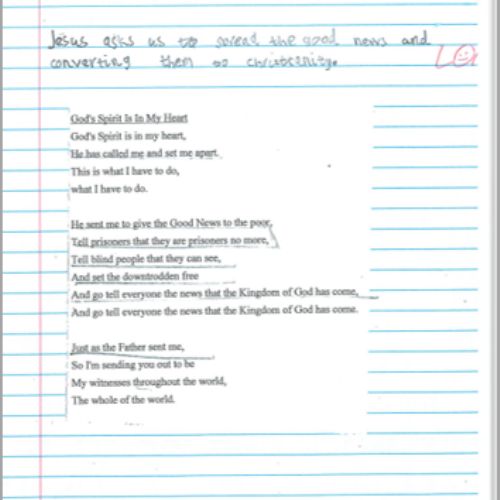 Jesus asks us to spread the good news and
converting them to christianity.
LO
God's Spirit Is In My Heart
God's Spirit is in my heart,
He has called me and set me apart.
This is what I have to do,
what I have to do.
He sent me to give the Good News to the poor,
Tell prisoners that they are prisoners no more,
Tell blind people that they can see,
And set the downtrodden free
And go tell everyone the news that the Kingdom of God has come,
And go tell everyone the news that the Kingdom of God has come.
Just as the Father sent me,
So I'm sending you out to be
My witnesses throughout the world,
The whole of the world.